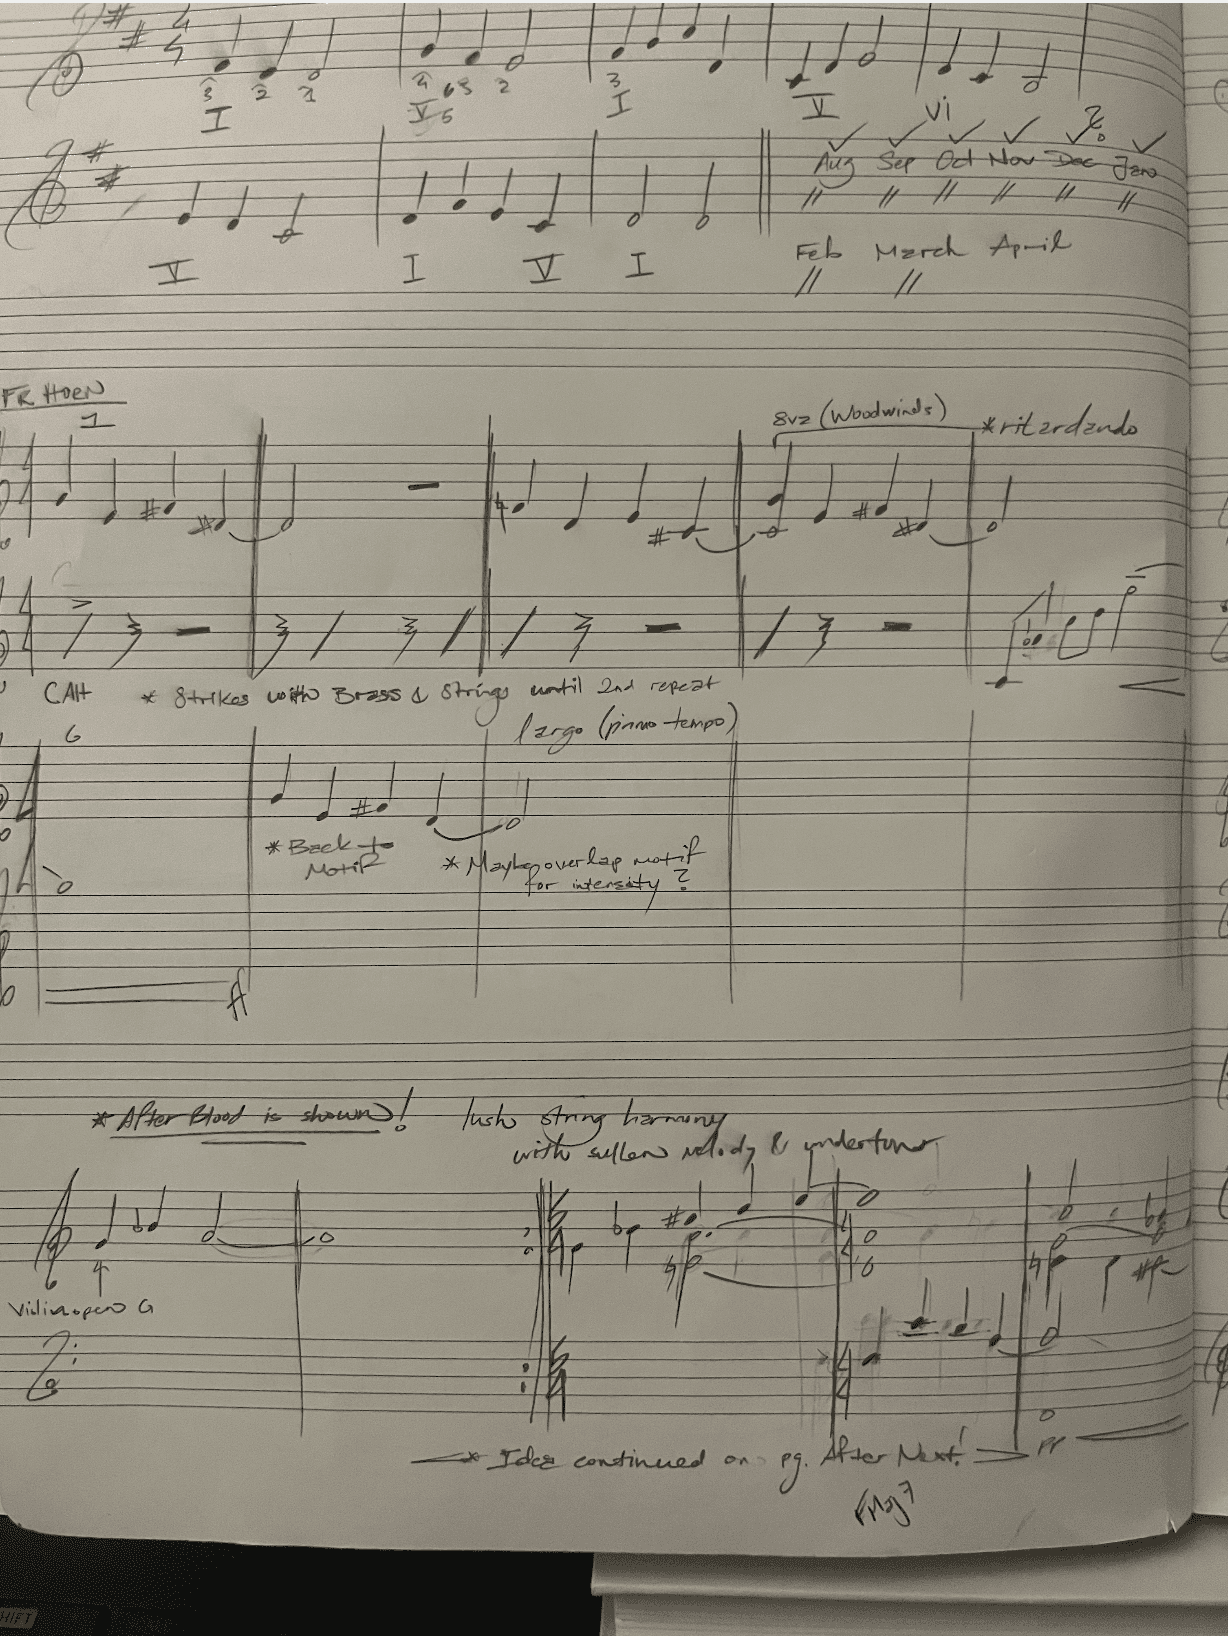 4
4
3 2 1
4 3 2
3
I V6 I V vi
Aug Sep Oct Nov Dec Jan
V I V I
Feb March April
FR HORN
1
8va (Woodwinds) *ritardando
* Strikes with Brass & Strings until 2nd repeat
6
largo (primo tempo)
* Back to
Motif
* Maybe overlap motif
for intensity?
ff
* After Blood is shown! lush string harmony
with sullen melody & undertones
4
4
Violin open G
4
4
* Idea continued on pg. After Next!
FMaj7
SHIFT